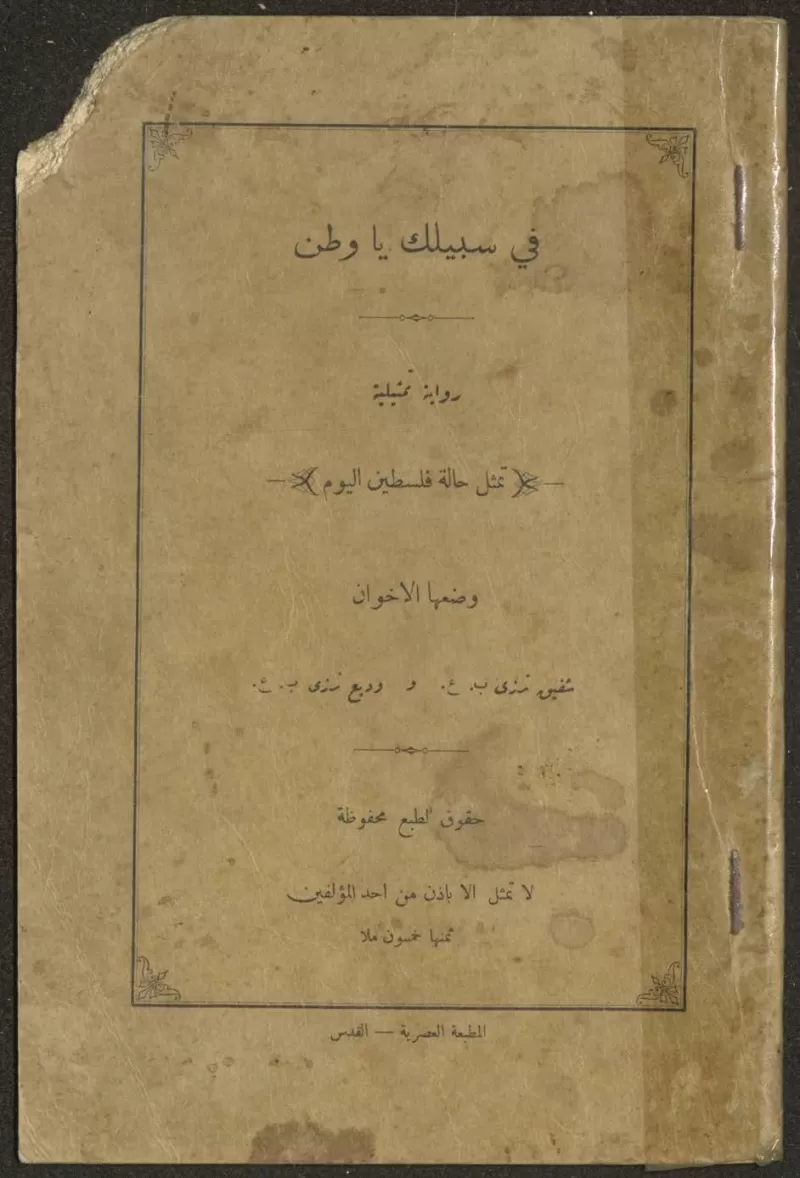 في سبيلك يا وطن
رواية تمثيلية
تمثل حالة فلسطين اليوم
وضعها الاخوان
شفيق ترزي ب. ع. و وديع ترزي ب. ع.
حقوق الطبع محفوظة
لا تمثل الا باذن من احد المؤلفين
ثمنها خمسون ملا
المطبعة العصرية — القدس